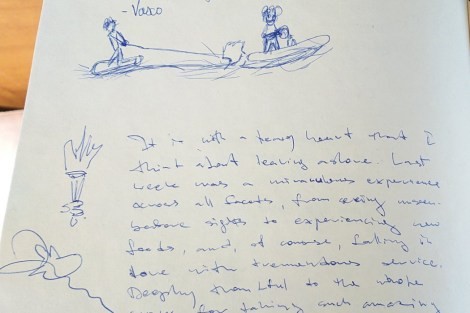 - Vasco
It is with a heavy heart that I
think about leaving ashore. Last
week was a miraculous experience
across all facets, from seeing never-
before sights to experiencing new
foods, and, of course, falling in
love with tremendous service.
Deeply thankful to the whole
for taking such amazing